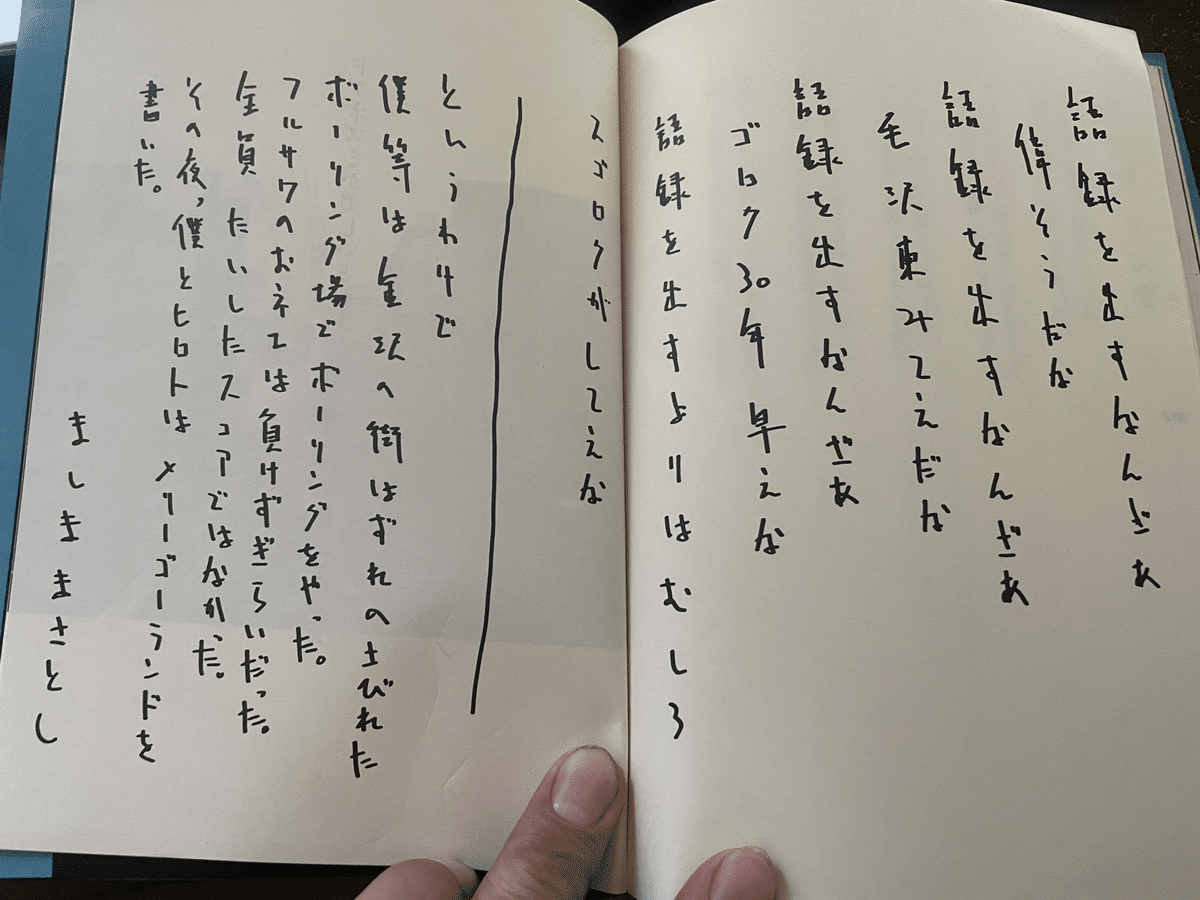 語録を出すなんざあ
偉そうだな
語録を出すなんざあ
毛沢東みてえだな
語録を出すなんざあ
ゴロク30年早えな
語録を出すよりはむしろ
スゴロクがしてえな
というわけで
僕等は金沢の街はずれの土びれた
ボーリング場でボーリングをやった。
フルサワのおネエは負けずぎらいだった。
全員たいしたスコアではなかった。
その夜、僕とヒロトはメリーゴーランドを
書いた。
ましままさとし